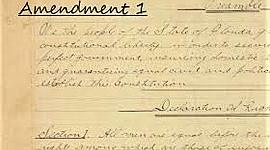 Amendment 1
Preamble
We the people of the State of Florida
constitutional liberty, in order to secure
perfect government, insuring domestic
and guaranteeing equal civil and
establish this Constitution
Declaration of
Section 1. All men are equal before the
rights, among which are those of